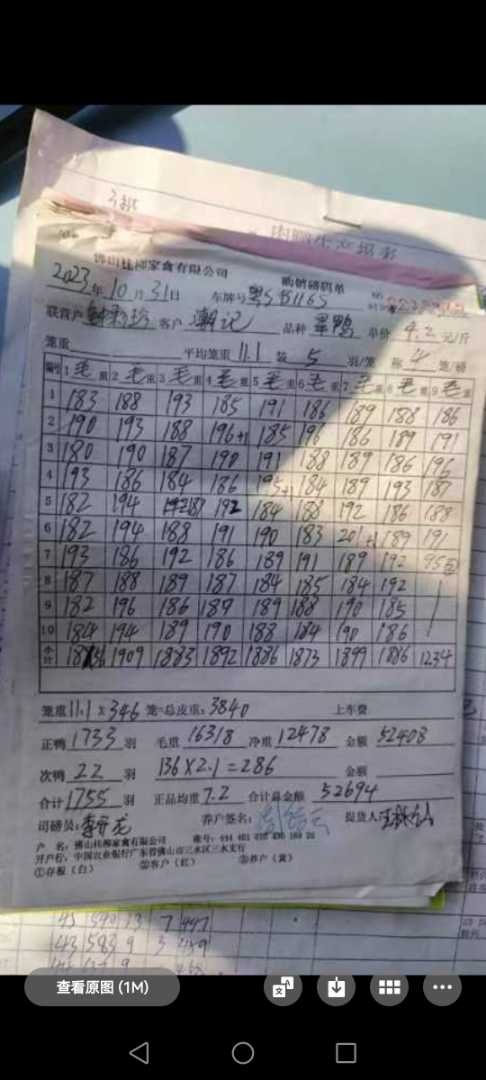 佛山桂柳家禽有限公司 购销磅码单
2023年10月31日 车牌号粤S
客户 潮记 品种 单价 4.2 元/斤
笼重 平均笼重 11.1 装 5 羽/笼 称 4 笼/磅
编号 1毛重 2毛重 3毛重 4毛重 5毛重 6毛重 7毛重 8毛重 9毛重
1 183 188 193 185 191 186 189 188 186
2 190 193 188 196+1 185 196 186 189 191
3 180 190 187 190 191 188 189 186 196
4 193 186 184 186 195+1 184 189 193 187
5 182 194 187 192 184 188 192 186 188
6 182 194 188 191 190 183 201+1 189 191
7 193 186 192 186 189 191 189 192 95
8 187 188 189 187 184 185 184 192
9 182 196 186 189 189 188 190 185
10 184 194 189 190 188 184 190 186
小计 1909 1883 1892 1886 1873 1899 1886 1234
笼重 11.1 x 346 笼=总皮重: 3840 上车费
正鸭 1733 羽 毛重 16318 净重 12478 金额 52408
次鸭 22 羽 136 X 2.1 = 286 金额
合计 1755 羽 正品均重 7.2 合计总金额 52694
司磅员: 养户签名: 提货人
户 名: 佛山桂柳家禽有限公司 账号:
开户行: 中国农业银行广东省佛山市三水区三水支行
①存根(白) ②客户(红) ③养户(黄)
查看原图 (1M)